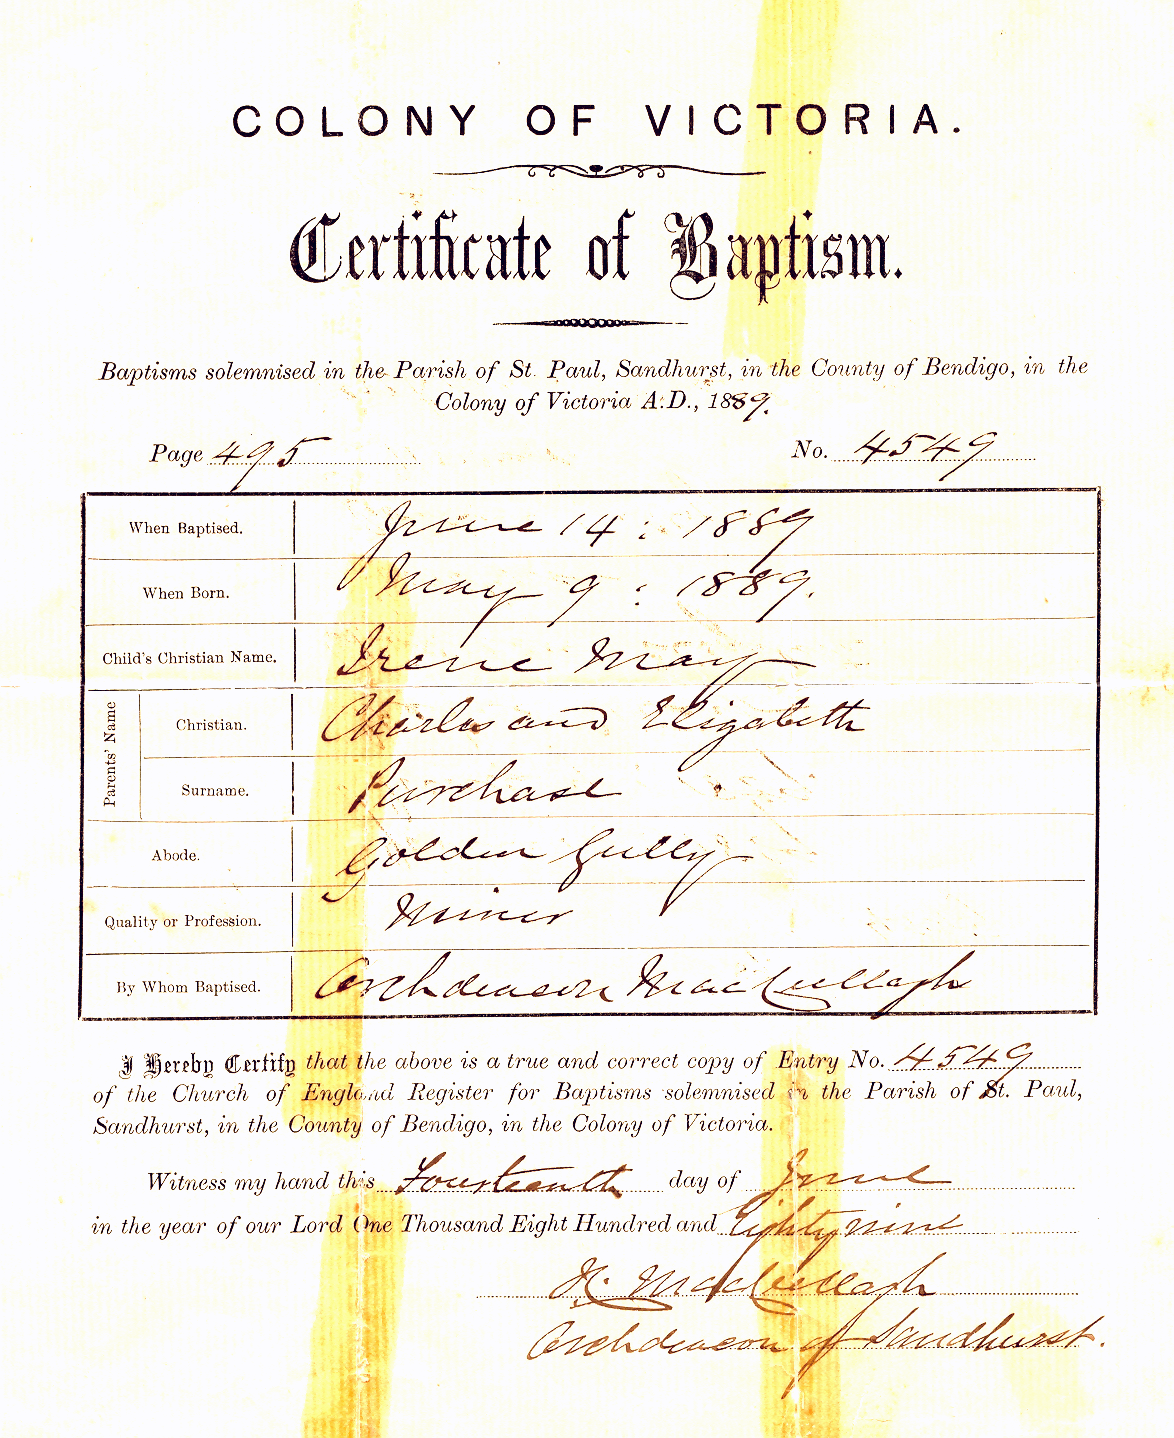 COLONY OF VICTORIA.
Certificate of Baptism.
Baptisms solemnised in the Parish of St. Paul, Sandhurst, in the County of Bendigo, in the
Colony of Victoria A.D., 1889.
Page 495 No. 4549
When Baptised. June 14 : 1889
When Born. May 9 : 1889.
Child's Christian Name. Irene May
Parents' Name
Christian. Charles and Elizabeth
Surname. Purchase
Abode. Golden Gully
Quality or Profession. Miner
By Whom Baptised. Archdeacon MacCullagh
I Hereby Certify that the above is a true and correct copy of Entry No. 4549
of the Church of England Register for Baptisms solemnised in the Parish of St. Paul,
Sandhurst, in the County of Bendigo, in the Colony of Victoria.
Witness my hand this Fourteenth day of June
in the year of our Lord One Thousand Eight Hundred and Eighty nine
MacCullagh
Archdeacon of Sandhurst.